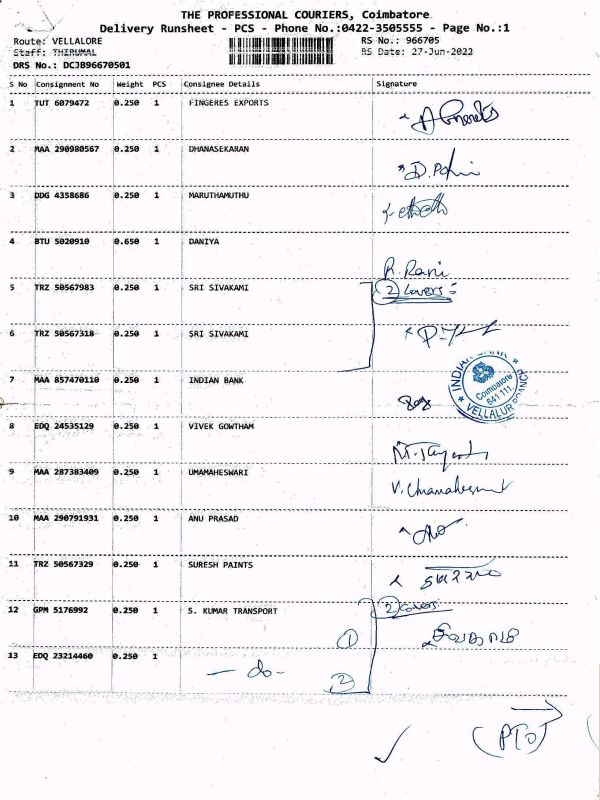 THE PROFESSIONAL COURIERS, Coimbatore
Delivery Runsheet - PCS - Phone No.:0422-3505555 - Page No.:1
Route: VELLALORE RS No.: 966705
Staff: THIRUMAL RS Date: 27-Jun-2022
DRS No.: DCJB96670501
S No Consignment No Weight PCS Consignee Details Signature
1 TUT 6079472 0.250 1 FINGERES EXPORTS
2 MAA 290980567 0.250 1 DHANASEKARAN
3 DDG 4358686 0.250 1 MARUTHAMUTHU
4 BTU 5020910 0.650 1 DANIYA
R. Rani
5 TRZ 50567983 0.250 1 SRI SIVAKAMI 2 Covers
6 TRZ 50567318 0.250 1 SRI SIVAKAMI
7 MAA 857470110 0.250 1 INDIAN BANK
INDIAN BANK
Coimbatore
641 111.
VELLALUR BRANCH
8 EDQ 24535129 0.250 1 VIVEK GOWTHAM
9 MAA 287383409 0.250 1 UMAMAHESWARI
V. Umamaheswari
10 MAA 290791931 0.250 1 ANU PRASAD
11 TRZ 50567329 0.250 1 SURESH PAINTS
12 GPM 5176992 0.250 1 S. KUMAR TRANSPORT 2 Covers
1
13 EDQ 23214460 0.250 1
- do - 2
(PTO)